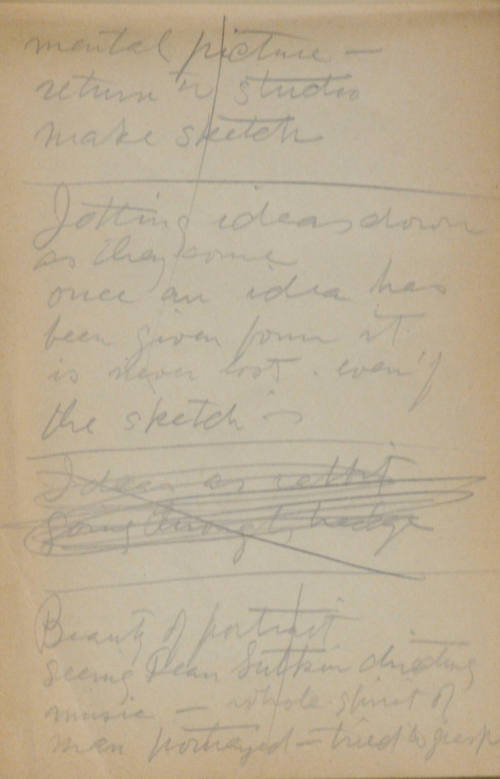 mental picture –
return to studio
make sketch
Jotting ideas down
as they come
once an idea has
been given form it
is never lost. even if
the sketch is
Ideas as rabbit
going through hedge
Beauty of portrait
seeing Dean directing
music – whole spirit of
man portrayed – tried to grasp